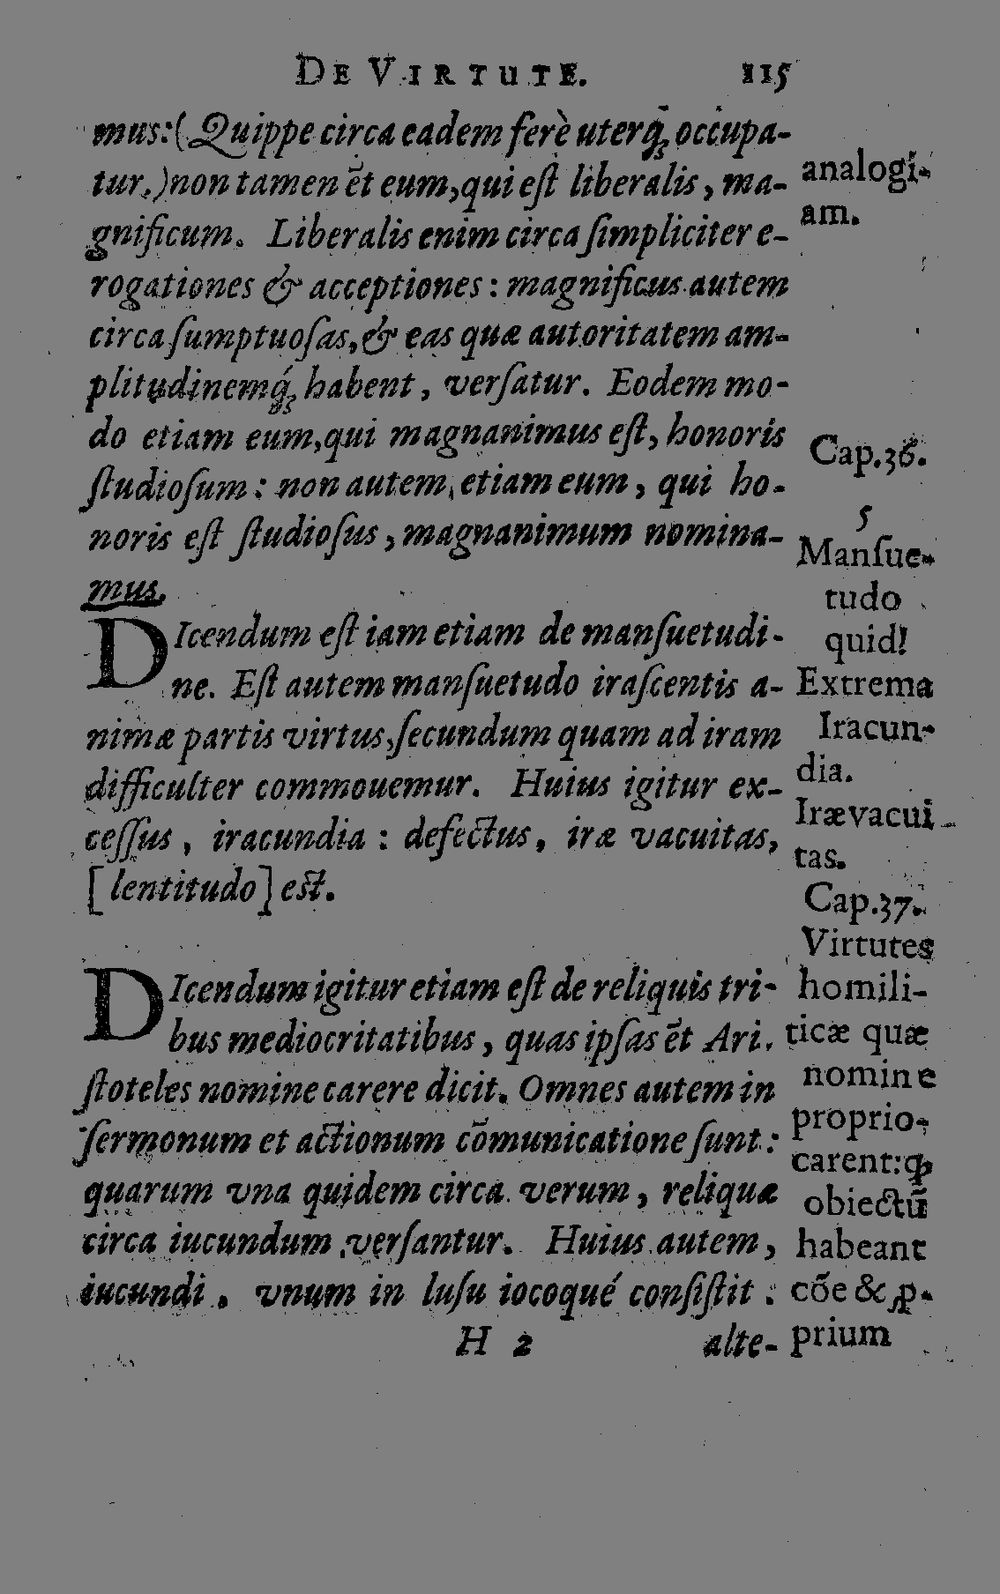 DE VIRTUTE. 115
mus:(Quippe circa eadem ferè uterq́ꝫ occupa-
tur.)non tamen ẽt eum,qui eſt liberalis, ma-
gnificum. Liberalis enim circa ſimpliciter e-
rogationes & acceptiones: magnificus autem
circa ſumptuoſas,& eas quæ autoritatem am-
plitudinemq́ꝫ habent, verſatur. Eodem mo-
do etiam eum,qui magnanimus eſt, honoris
ſtudioſum: non autem etiam eum, qui ho-
noris eſt ſtudioſus, magnanimum nomina-
mus.
DIcendum eſt iam etiam de manſuetudi-
ne. Eſt autem manſuetudo iraſcentis a-
nimæ partis virtus,ſecundum quam ad iram
difficulter commouemur. Huius igitur ex-
ceſſus, iracundia: defectus, iræ vacuitas,
[lentitudo] eſt.
DIcendum igitur etiam eſt de reliquis tri-
bus mediocritatibus, quas ipſas ẽt Ari-
ſtoteles nomine carere dicit. Omnes autem in
ſermonum et actionum cõmunicatione ſunt:
quarum vna quidem circa verum, reliquæ
circa iucundum verſantur. Huius autem,
iucundi, vnum in luſu iocoqué conſiſtit:
H 2 alte-
analogi-
am.
Cap.36.
5
Manſue-
tudo
quid!
Extrema
Iracun-
dia.
Iræ vacui
tas.
Cap.37.
Virtutes
homili-
ticæ quæ
nomine
proprio
carent:ꝙ
obiectũ
habeant
cõe & ꝓ-
prium